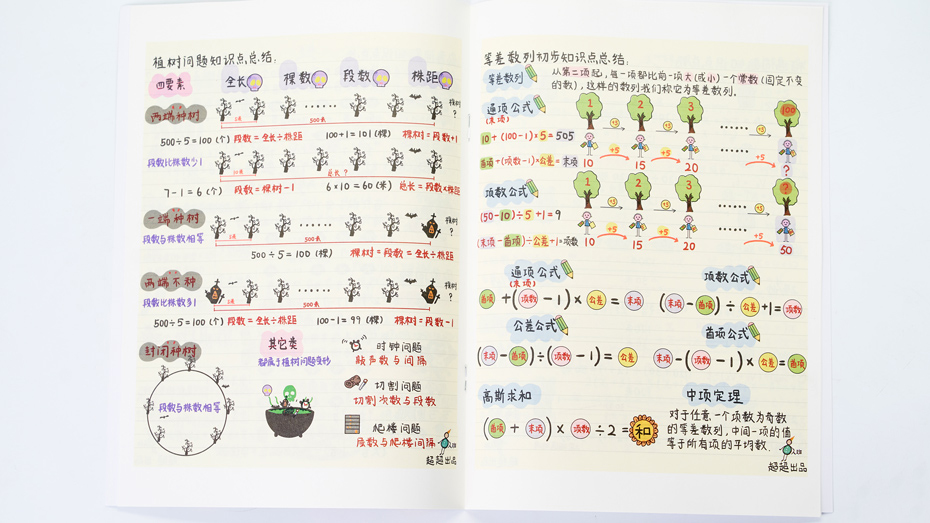 植树问题知识点总结:
四要素 全长 棵数 段数 株距
两端种树
500米
500÷5=100(个) 段数=全长÷株距 100+1=101(棵) 棵树=段数+1
段数比株数少1
总长?
7-1=6(个) 段数=棵树-1 6×10=60(米) 总长=段数×株距
一端种树
段数与株数相等
500米
500÷5=100(棵) 棵树=段数=全长÷株距
两端不种
段数比株数多1
500米
500÷5=100(个) 段数=全长÷株距 100-1=99(棵) 棵树=段数-1
封闭种树
段数与株数相等
其它类
都属于植树问题变形
时钟问题
敲声数与间隔
切割问题
切割次数与段数
爬楼问题
层数与爬楼间隔
超超出品
等差数列初步知识点总结:
等差数列 从第二项起,每一项都比前一项大(或小)一个常数(固定不变
的数),这样的数列我们称它为等差数列.
通项公式
(末项)
1 2 3 100
+3 +3 +3
10+(100-1)×5=505
首项+(项数-1)×公差=末项
10 +5 15 +5 20 …… +5 ?
项数公式
1 2 3 ?
+3 +3 +3
(50-10)÷5+1=9
(末项-首项)÷公差+1=项数
10 +5 15 +5 20 …… +5 50
通项公式
(末项)
首项+(项数-1)×公差=末项
项数公式
(末项-首项)÷公差+1=项数
公差公式
(末项-首项)÷(项数-1)=公差
首项公式
末项-(项数-1)×公差=首项
高斯求和
(首项+末项)×项数÷2=和
中项定理
对于任意一个项数为奇数
的等差数列,中间一项的值
等于所有项的平均数.
超超出品